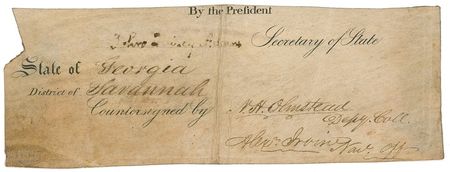 By the President
John Quincy Adams Secretary of State
State of Georgia
District of Savannah
Countersigned by N. H. Olmstead
Depy. Coll.
Alexr. Irvine Nav. Off.